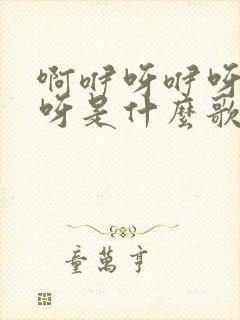 啊咿呀咿呀
呀是什麼歌
童萬亨